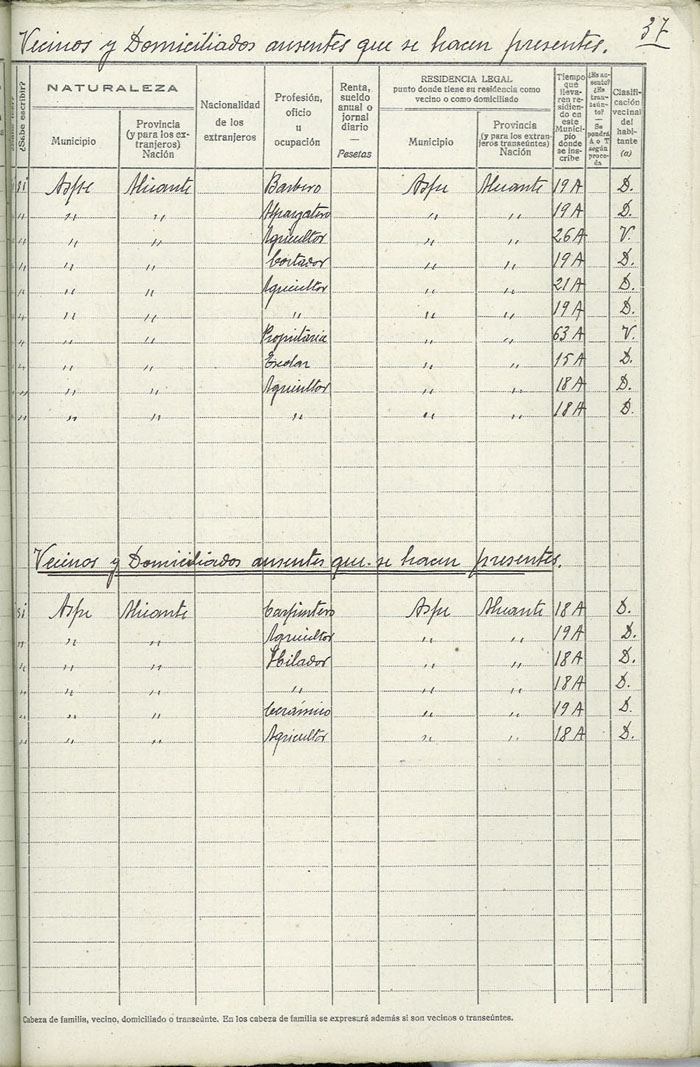 Vecinos y Domiciliados ausentes que se hacen presentes. 37
¿Sabe escribir? NATURALEZA Municipio Provincia (y para los extranjeros) Nación Nacionalidad de los extranjeros Profesión, oficio u ocupación Renta, sueldo anual o jornal diario — Pesetas RESIDENCIA LEGAL punto donde tiene su residencia como vecino o como domiciliado Municipio Provincia (y para los extranjeros transeúntes) Nación Tiempo que llevaren residiendo en este Municipio donde se inscribe ¿Es ausento? ¿Es transeúnto? — Se pondrá A o T según proceda Clasificación vecinal del habitante (a)
si Aspe Alicante Barbero Aspe Alicante 19 A D.
" " " Alpargatero " " 19 A D.
" " " Agricultor " " 26 A V.
" " " Cortador " " 19 A D.
" " " Agricultor " " 21 A D.
" " " " " " 19 A D.
" " " Propietaria " " 63 A V.
" " " Escolar " " 15 A D.
" " " Agricultor " " 18 A D.
" " " " " " 18 A D.
Vecinos y Domiciliados ausentes que se hacen presentes.
si Aspe Alicante Carpintero Aspe Alicante 18 A D.
" " " Agricultor " " 19 A D.
" " " Hilador " " 18 A D.
" " " " " " 18 A D.
" " " Cerámico " " 19 A D.
" " " Agricultor " " 18 A D.
Cabeza de familia, vecino, domiciliado o transeúnte. En los cabeza de familia se expresará además si son vecinos o transeúntes.